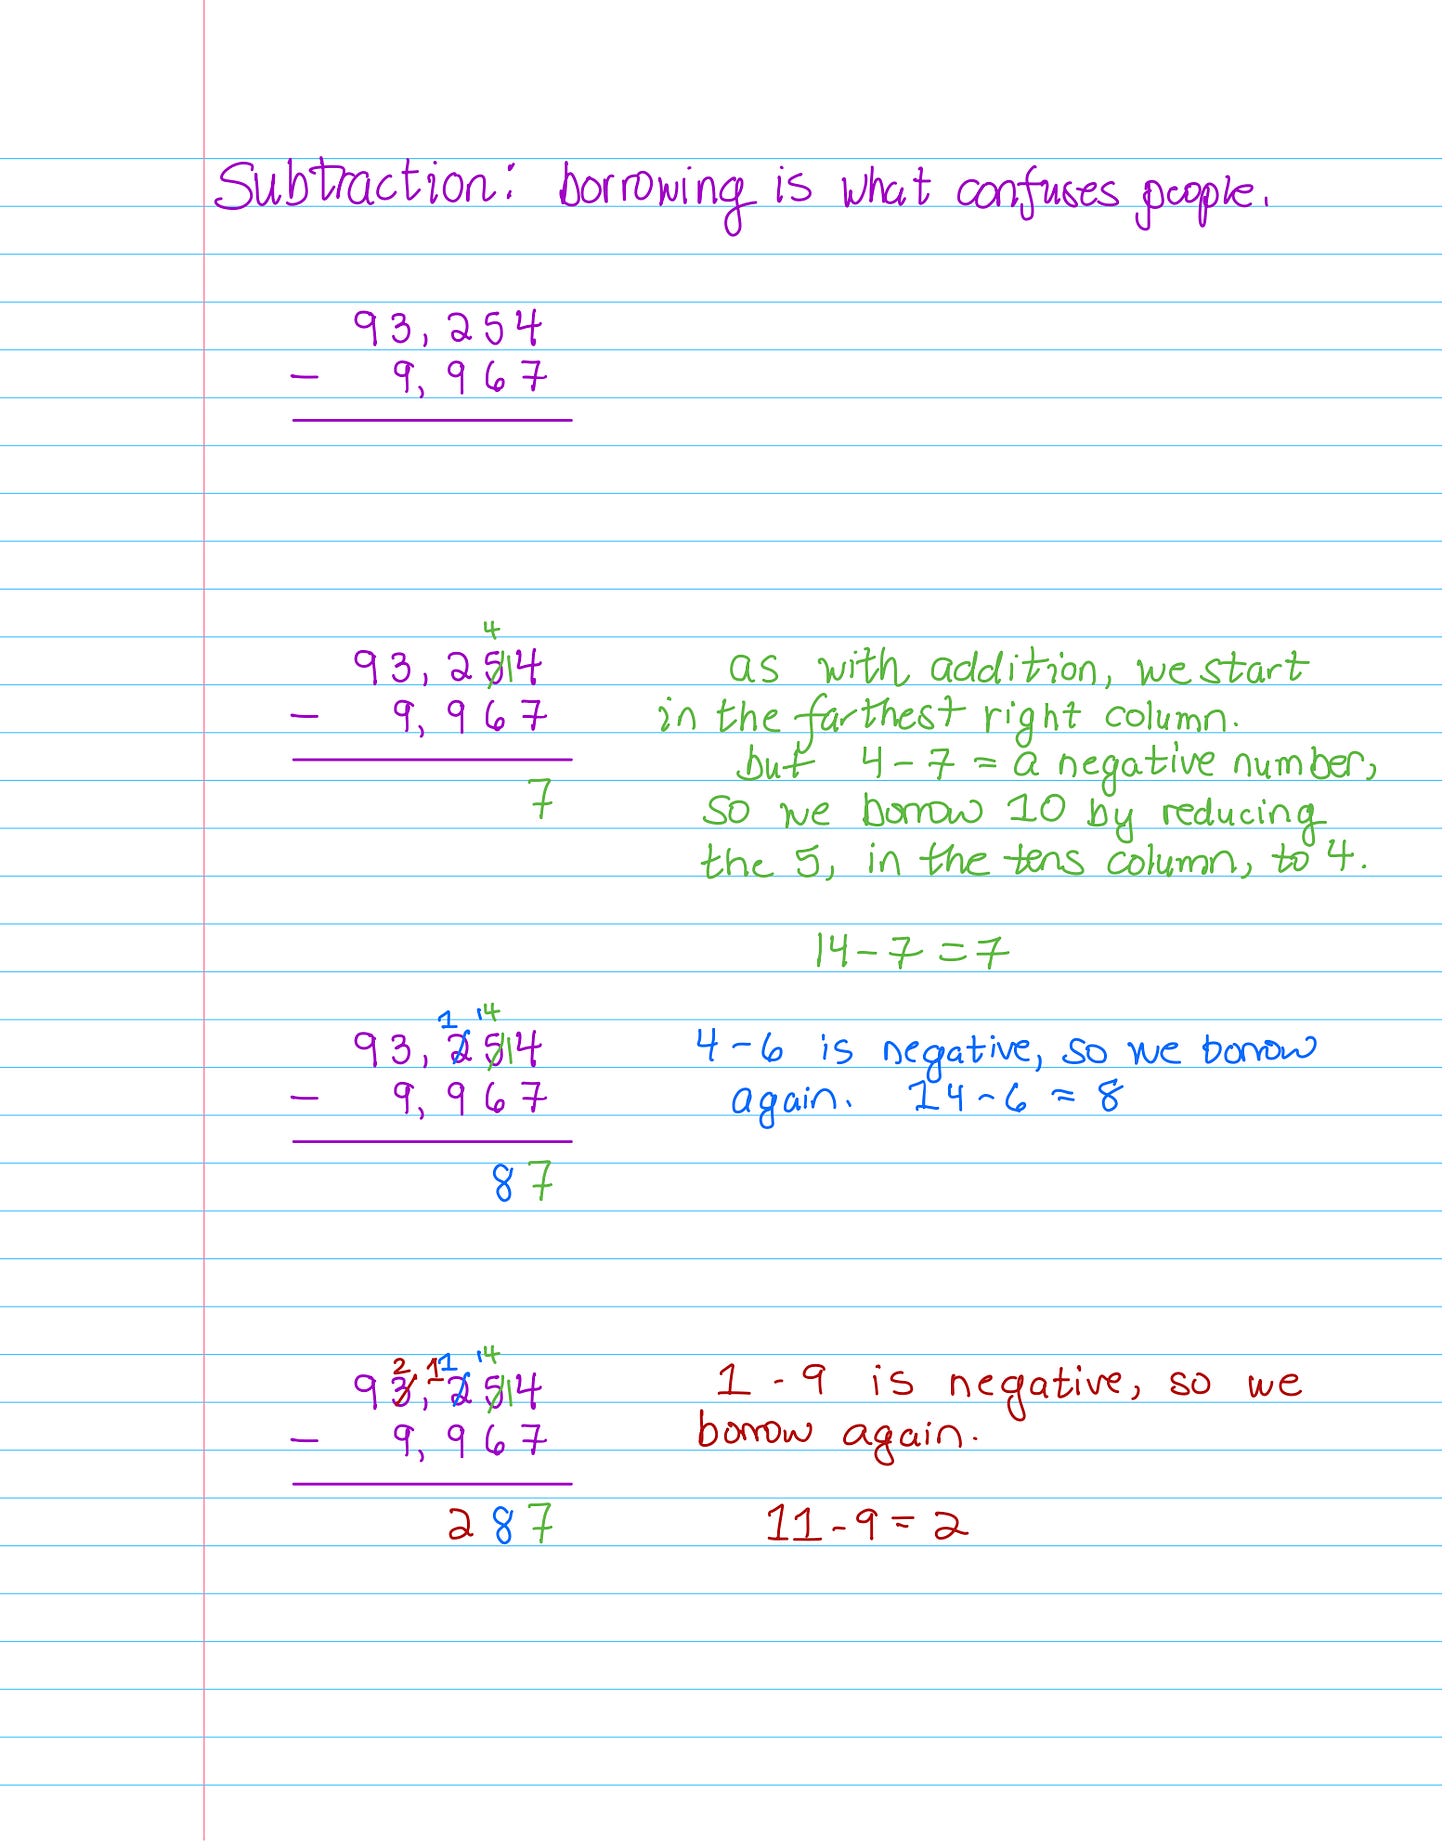 Subtraction: borrowing is what confuses people.
93,254
- 9,967
4
93,2514
- 9,967
7
as with addition, we start
in the farthest right column.
but 4 - 7 = a negative number,
so we borrow 10 by reducing
the 5, in the tens column, to 4.
14 - 7 = 7
1 14
93,2514
- 9,967
87
4 - 6 is negative, so we borrow
again. 14 - 6 = 8
2 11 14
93,2514
- 9,967
287
1 - 9 is negative, so we
borrow again.
11 - 9 = 2